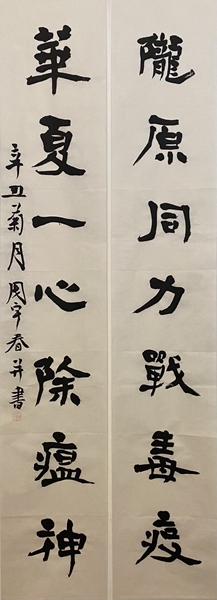 隴原同力戰毒疫
華夏一心除瘟神
辛丑菊月周宇春并書